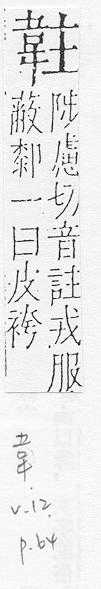 陟慮切音註戎服
蔽厀一曰皮袴
韋
v.12.
p.64